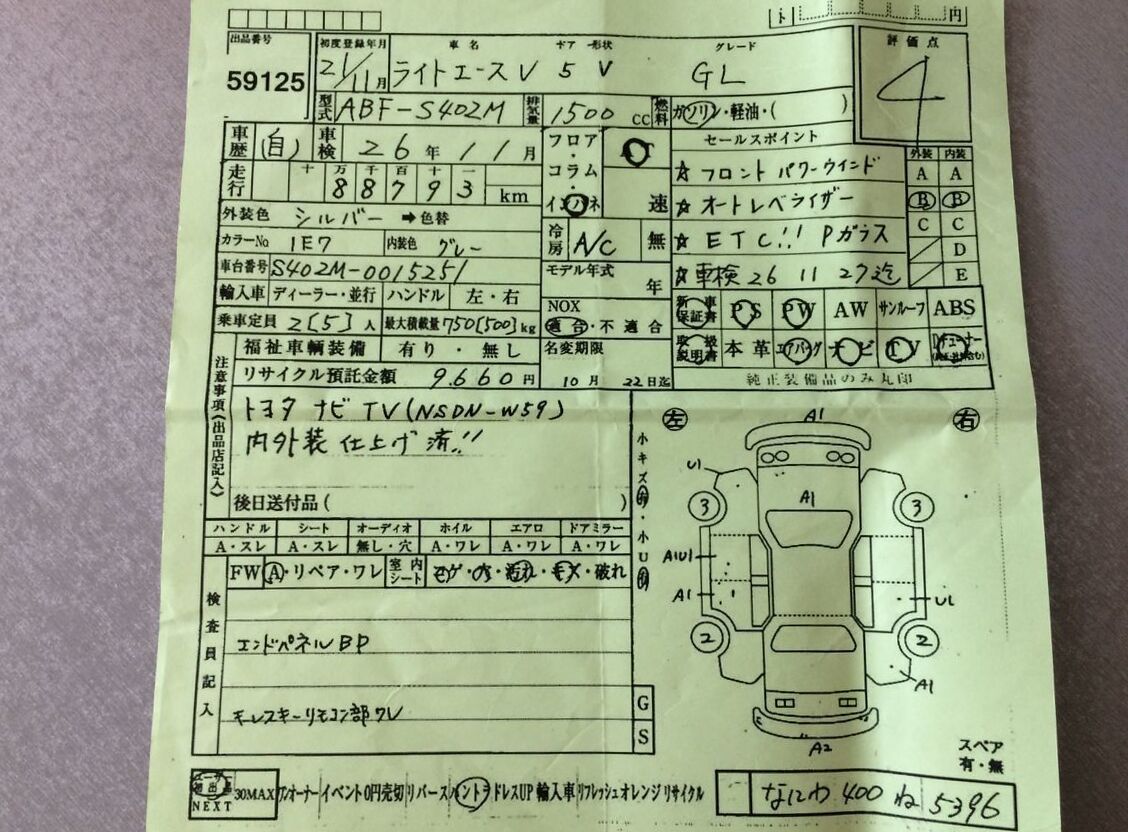 円
出品番号
59125
初度登録年月 車名 ドア 形状 グレード 評価点
21/11月 ライトエースV 5 V GL 4
型式 ABF-S402M 排気量 1500 CC 燃料 ガソリン・軽油・( )
車歴 (自) 車検 26年11月 フロア・コラム・インパネ AT 速
セールスポイント
外装 内装
走行 十 万 千 百 十 一
88793 km
☆フロント パワーウインド
☆オートレベライザー
☆ETC!! Pガラス
☆車検 26 11 27迄
A A
B B
C C
D
E
外装色 シルバー ➡色替
カラーNo 1E7 内装色 グレー
冷房 A/C 無
車台番号 S402M-0015251
モデル年式 年
輸入車 ディーラー・並行 ハンドル 左・右
NOX
適合・不適合
乗車定員 2[5]人 最大積載量 750[500]kg
新車保証書 PS PW AW サンルーフ ABS
取扱説明書 本革 エアバッグ ナビ TV
純正装備品のみ丸印
福祉車輌装備 有り・無し
名変期限
10月 22日迄
リサイクル預託金額 9,660円
注意事項(出品店記入)
トヨタ ナビ TV(NSDN-W59)
内外装 仕上げ済!!
後日送付品( )
小キズ有・小U
ハンドル シート オーディオ ホイル エアロ ドアミラー
A・スレ A・スレ 無し・穴 A・ワレ A・ワレ A・ワレ
FW A・リペア・ワレ 室内シート コゲ・穴・汚れ・キズ・破れ
検査員記入
エンドパネルBP
キーレスキーリモコン部ワレ
G
S
左 右
A1
U1
A1
3 3
A1U1
A1
U1
2 2
A1
A2
スペア
有・無
ユーザー初出品 NEXT 30MAX ワンオーナー イベント 0円売切 リバース バントラ ドレスUP 輸入車 リフレッシュ オレンジ リサイクル
なにわ 400 ね 5396